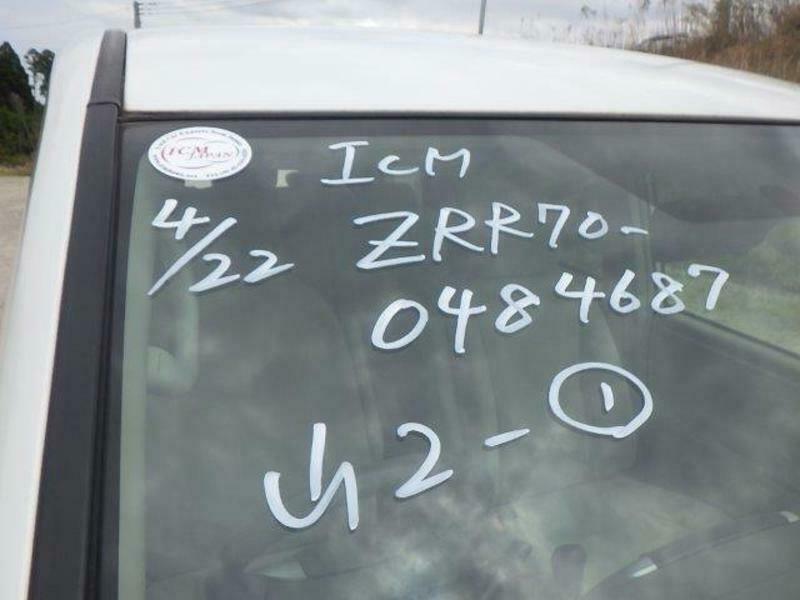 ICM JAPAN
ICM
4/22
ZRR70-
0484687
山2-①